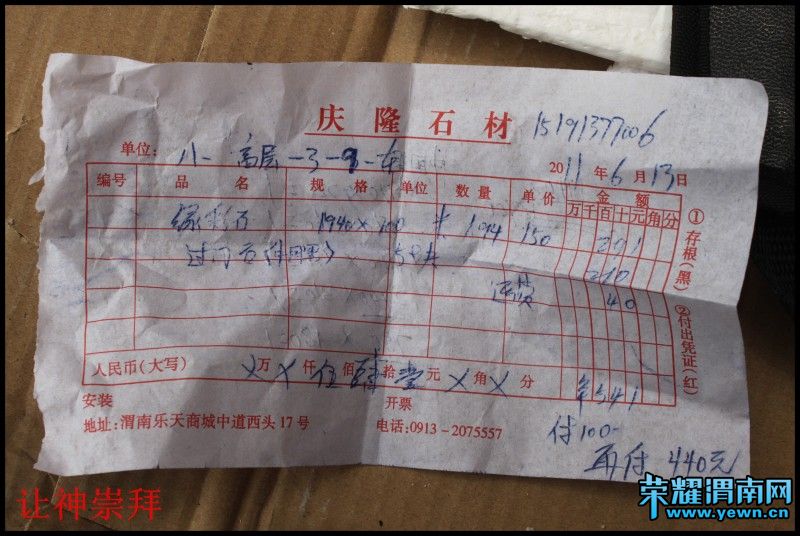 庆隆石材 15191377006
单位: 小高层-3-9-东
2011年6月13日
编号 品名 规格 单位 数量 单价 金额
万千百十元角分
1940×100 150 291
过门石 210
运费 40
人民币(大写) ㄨ万ㄨ仟伍佰肆拾壹元ㄨ角ㄨ分 541
①存根(黑)
②付出凭证(红)
安装 开票
地址:渭南乐天商城中道西头17号 电话:0913-2075557
付100-
再付 440元
让神崇拜
荣耀渭南网
www.yewn.cn